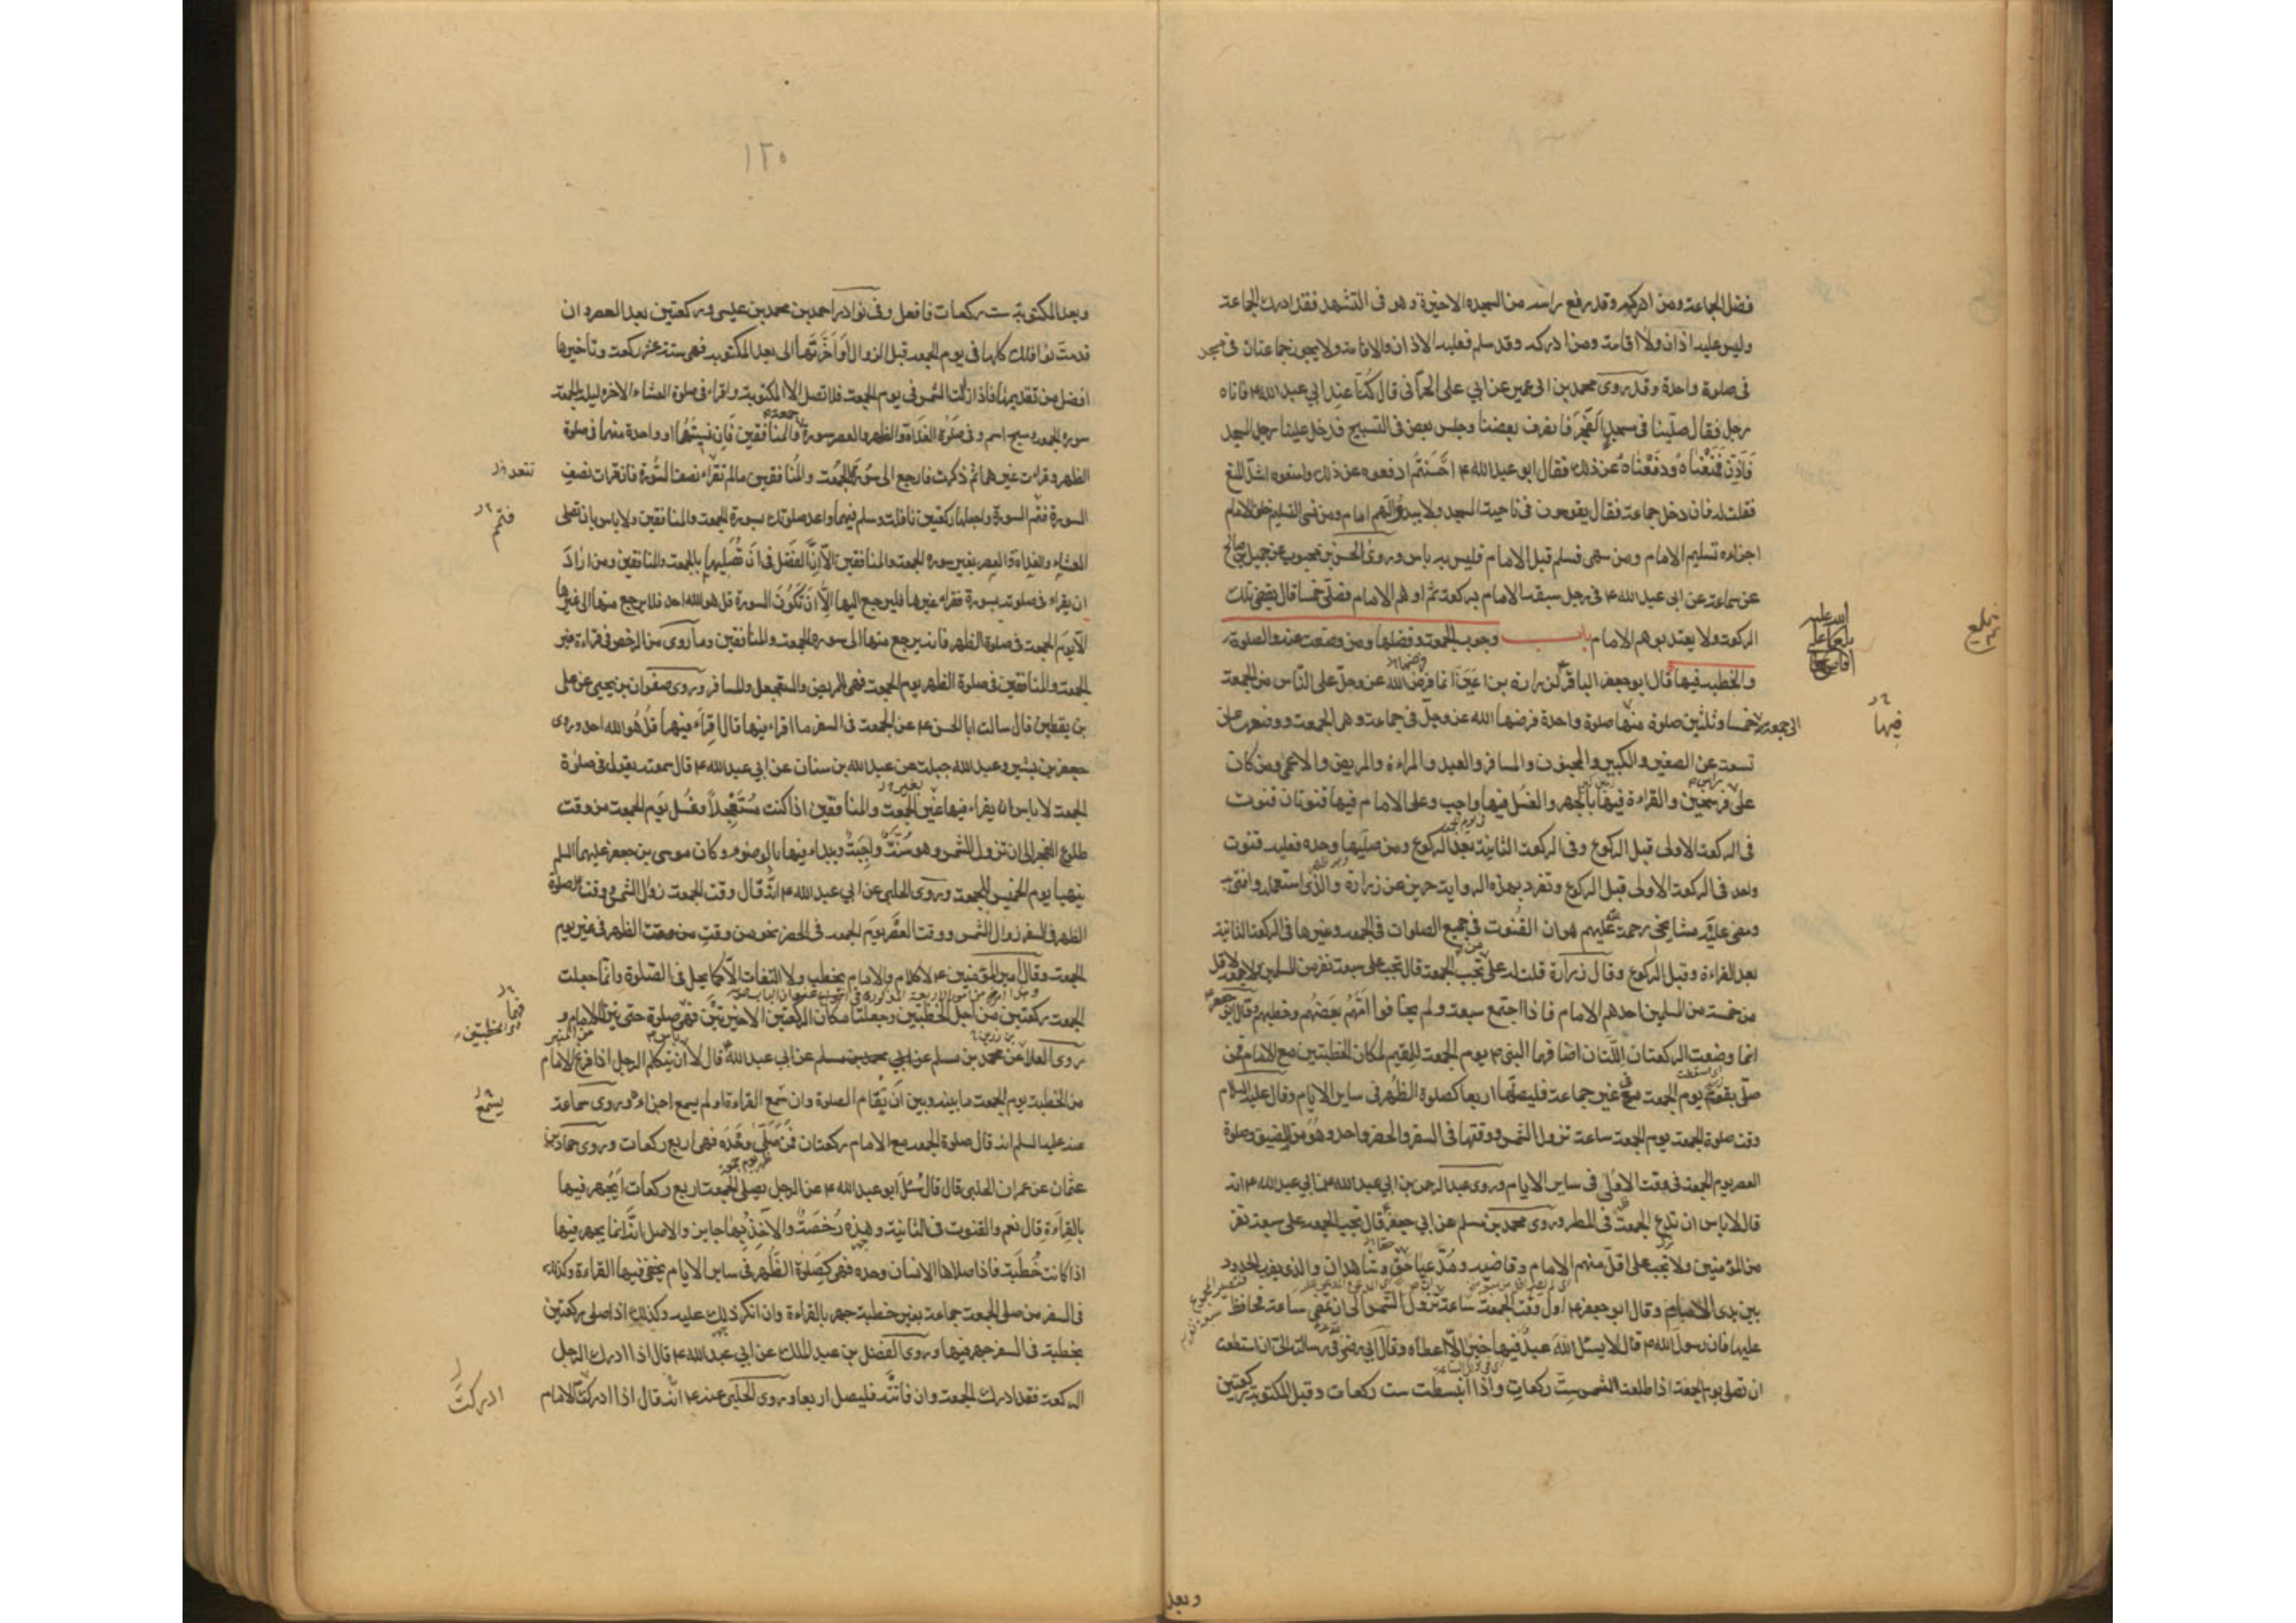 فضل الجماعة ومن ادركهم وقد رفع راسه من السجدة الاخيرة وهو فى التشهد فقد ادرك الجماعة
وليس عليه اذان ولا اقامة ومن ادركه وقد سلم فعليه الاذان والاقامة ولا يجوز جماعتان فى مسجد
فى صلوة واحدة وقد روى محمد بن ابى عمير عن ابي على الحرانى قال كنا عند ابي عبد الله ع فاتاه
رجل فقال صلينا فى مسجد الفجر فانصرف بعضنا وجلس بعض فى التسبيح فدخل علينا رجل المسجد
فاذن فمنعناه ودفعناه عن ذلك فقال ابو عبد الله ع احسنتم ادفعوه عن ذلك وامنعوه اشد المنع
فقلت له فان دخل جماعة فقال يقومون فى ناحية المسجد ولا يبدو لهم امام ومن نسى التسليم خلف الامام
اجزاءه تسليم الامام ومن سهى فسلم قبل الامام فليس به باس وروى الحسن بن محبوب عن جميل بن صالح
عن سماعة عن ابى عبد الله ع فى رجل سبقه الامام بركعة ثم اوهم الامام فصلى خمسا قال يقضى تلك
الركعة ولا يعتد بوهم الامام باب وجوب الجمعة وفضلها ومن وضعت عنه والصلوة
والخطبة فيها قال ابو جعفر الباقر ع لزرارة بن اعين انما فرض الله عز وجل على الناس من الجمعة
الى الجمعة خمسا وثلثين صلوة منها صلوة واحدة فرضها الله عز وجل فى جماعة وهى الجمعة ووضعها عن
تسعة عن الصغير والكبير والمجنون والمسافر والعبد والمراءة والمريض والاعمى ومن كان
على فرسخين والقراءة فيها بالجهر والغسل فيها واجب وعلى الامام فيها قنوتان قنوت
فى الركعة الاولى قبل الركوع وفى الركعة الثانية بعد الركوع ومن صليها وحده فعليه قنوت
واحد فى الركعة الاولى قبل الركوع وتفرد بهذه الرواية حريز عن زرارة والذى استعمله وافتى به
ومضى عليه مشايخى رحمة الله عليهم هو ان القنوت فى جميع الصلوات فى الجمعة وغيرها فى الركعة الثانية
بعد القراءة وقبل الركوع وقال زرارة قلت له على من تجب الجمعة قال تجب على سبعة نفر من المسلمين ولا جمعة لاقل
من خمسة من المسلمين احدهم الامام فاذا اجتمع سبعة ولم يخافوا امهم بعضهم وخطبهم وقال ابو جعفر ع
انما وضعت الركعتان اللتان اضافهما النبى ص يوم الجمعة للمقيم لمكان الخطبتين مع الامام فمن
صلى يوم الجمعة فى غير جماعة فليصلها اربعا كصلوة الظهر فى ساير الايام وقال عليه السلام
وقت صلوة الجمعة يوم الجمعة ساعة تزول الشمس ووقتها فى السفر والحضر واحد وهو من المضيق وصلوة
العصر يوم الجمعة فى وقت الاولى فى ساير الايام وروى عبد الرحمن بن ابي عبد الله عن ابي عبد الله ع انه
قال لا باس ان تدع الجمعة فى المطر وروى محمد بن مسلم عن ابي جعفر ع قال تجب الجمعة على سبعة نفر
من المؤمنين ولا تجب على اقل منهم الامام وقاضيه ومدعيا حق وشاهدان والذى يضرب الحدود
بين يدى الامام وقال ابو جعفر ع اول وقت الجمعة ساعة تزول الشمس الى ان تمضى ساعة فحافظ
عليها فان رسول الله ص قال لا يسئل الله عبد فيها خيرا الا اعطاه وقال ابي رض فى رسالته الى ان استطعت
ان تصلى يوم الجمعة اذا طلعت الشمس ست ركعات واذا انبسطت ست ركعات وقبل المكتوبة ركعتين
وبعد
فيها
بلغ
١٢٥
وبعد المكتوبة ست ركعات فافعل وفى نوادر احمد بن محمد بن عيسى وركعتين بعد العصر وان
قدمت نوافلك كلها فى يوم الجمعة قبل الزوال او اخرتها الى بعد المكتوبة فهى ستة عشر ركعة وتاخيرها
افضل من تقديمها فاذا زالت الشمس فى يوم الجمعة فلا تصل الا المكتوبة واقراء فى صلوة العشاء الاخرة ليلة الجمعة
سورة الجمعة وسبح اسم وفى صلوة الغداة والظهر والعصر سورة جمعة والمنافقين فان نسيتهما او واحدة منهما فى صلوة
الظهر وقراءت غيرهما ثم ذكرت فارجع الى سورة الجمعة والمنافقين ما لم تقراء نصف السورة فان قرات نصف
السورة فتمم السورة واجعلها ركعتين نافلة وسلم فيهما واعد صلوتك بسورة الجمعة والمنافقين ولا باس بان تصلى
العشاء والغداة والعصر بغير سورة الجمعة والمنافقين الا ان الفضل فى ان تصليها بالجمعة والمنافقين ومن اراد
ان يقراء فى صلوته بسورة فقراء غيرها فليرجع اليها الا ان تكون السورة قل هو الله احد فلا يرجع منها الى غيرها
الا يوم الجمعة فى صلوة الظهر فانه يرجع منها الى سورة الجمعة والمنافقين وما روى من الرخص فى قراءة غير
الجمعة والمنافقين فى صلوة الظهر يوم الجمعة فهى للمريض والمستعجل والمسافر وروى صفوان بن يحيى عن على
بن يقطين قال سالت ابا الحسن ع عن الجمعة فى السفر ما اقراء فيها قال اقراء فيها قل هو الله احد وروى
جعفر بن بشير وعبد الله جبلة عن عبد الله بن سنان عن ابي عبد الله ع قال سمعته يقول فى صلوة
الجمعة لا باس ان يقراء فيها غير الجمعة والمنافقين اذا كنت مستعجلا وغسل يوم الجمعة من وقت
طلوع الفجر الى ان تزول الشمس وهو سنة واجبة ويبداء فيها بالوضوء وكان موسى بن جعفر عليهما السلم
يتهيا يوم الخميس للجمعة وروى الحلبى عن ابي عبد الله ع انه قال وقت الجمعة زوال الشمس ووقت صلوة
الظهر فى السفر زوال الشمس ووقت العصر يوم الجمعة فى الحضر نحو من وقت الظهر فى غير يوم
الجمعة وقال امير المؤمنين ع لا كلام والامام يخطب ولا التفات الا كما يحل فى الصلوة وانما جعلت
الجمعة ركعتين من اجل الخطبتين وجعلتا مكان الركعتين الاخيرتين فهى صلوة حتى ينزل الامام و
روى العلا عن محمد بن مسلم عن ابي عبد الله ع قال لا باس ان يتكلم الرجل اذا فرغ الامام
من الخطبة يوم الجمعة ما بينه وبين ان تقام الصلوة وان سمع القراءة او لم يسمع اجزاءه وروى سماعة
عنه عليه السلم انه قال صلوة الجمعة مع الامام ركعتان فمن صلى وحده فهى اربع ركعات وروى حماد بن
عثمان عن عمران الحلبى قال قال سئل ابو عبد الله ع عن الرجل يصلى الجمعة اربع ركعات ايجهر فيها
بالقراءة قال نعم والقنوت فى الثانية وهذه رخصة والاخذ بها جايز والاصل انه انما يجهر فيها
اذا كانت خطبة فاذا صلاها الانسان وحده فهى كصلوة الظهر فى ساير الايام يخفى فيها القراءة وكذلك
فى السفر من صلى الجمعة جماعة بغير خطبة جهر بالقراءة وان انكر ذلك عليه وكذلك اذا صلى ركعتين
بخطبة فى السفر جهر فيها وروى الفضل بن عبد الملك عن ابي عبد الله ع قال اذا ادرك الرجل
الركعة فقد ادرك الجمعة وان فاتته فليصل اربعا وروى الحلبى عنه ع انه قال اذا ادركت الامام
فتمم
يسمع
ادركت